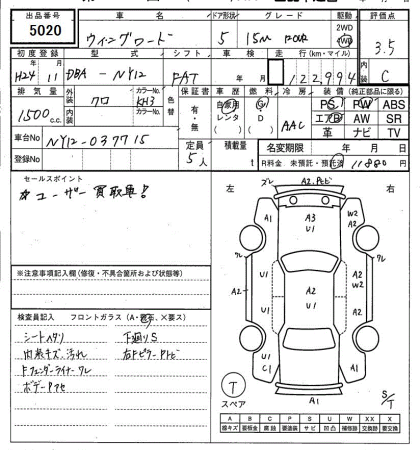 出品番号 車名 ドア形状 グレード 駆動 評価点
5020 ウィングロード 5 15M FOUR 2WD 4WD 3.5
初度登録 型式 シフト 車検 走行(km・マイル) 内装
H24 11 DBA-NY12 FAT 年 月 122,994 C
排気量 外装 カラーNo. 色替 保証書 車歴 燃料 冷房 装備(純正部品に限る)
1500 c.c. クロ KH3 有・無 自家用 レンタ G D AAC PS PW ABS
内装 カラーNo. エアB AW SR
革 ナビ TV
車台No NY12-037715 定員 5人 積載量 t 名変期限 年 月 日
登録No R料金 未預託・預託済 11880 円
セールスポイント
☆ユーザー買取車!
左 右
※注意事項記入欄(修復・不具合箇所および状態等)
検査員記入 フロントガラス(A・飛石、×要ス)
シートヘタリ 下廻りS
内装キズ、汚れ 右Fピラー Pトビ
Fフェンダーライナー ワレ
ボデー P アセ
ズレ A2.Pトビ
A1 A3 U1 W2 A2
ワレ ワレ
U1 A2 U1 A2 A2 W2 A2
U1 C1 U1 A1
T スペア A1 S/T
A B C P S U W X XX
線キズ 要板金 腐蝕 要塗装 サビ 凹凸 補修跡 要交換 交換済